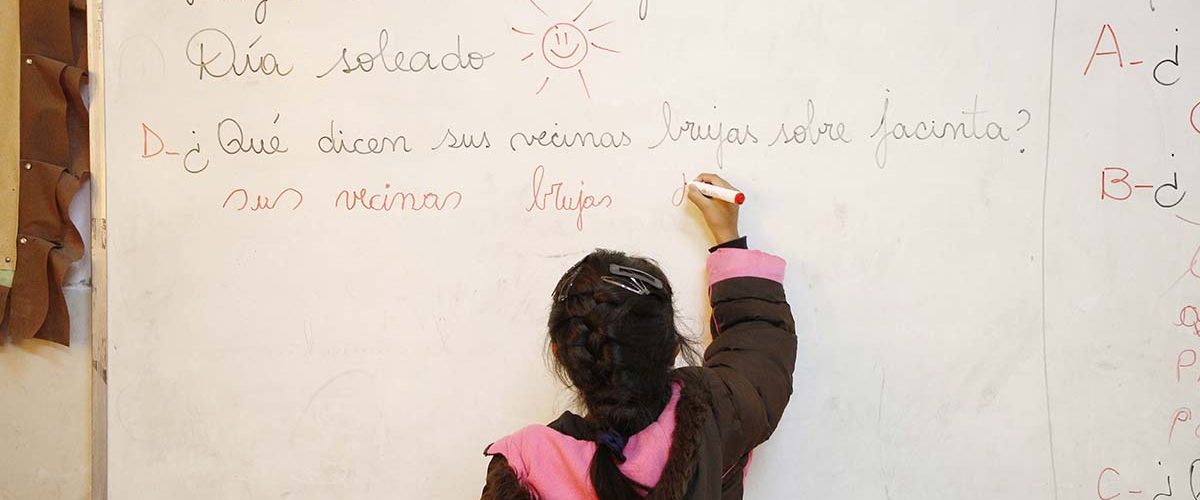 Día soleado
D-¿Qué dicen sus vecinas brujas sobre Jacinta?
sus vecinas brujas
A-¿
B-¿
C-¿